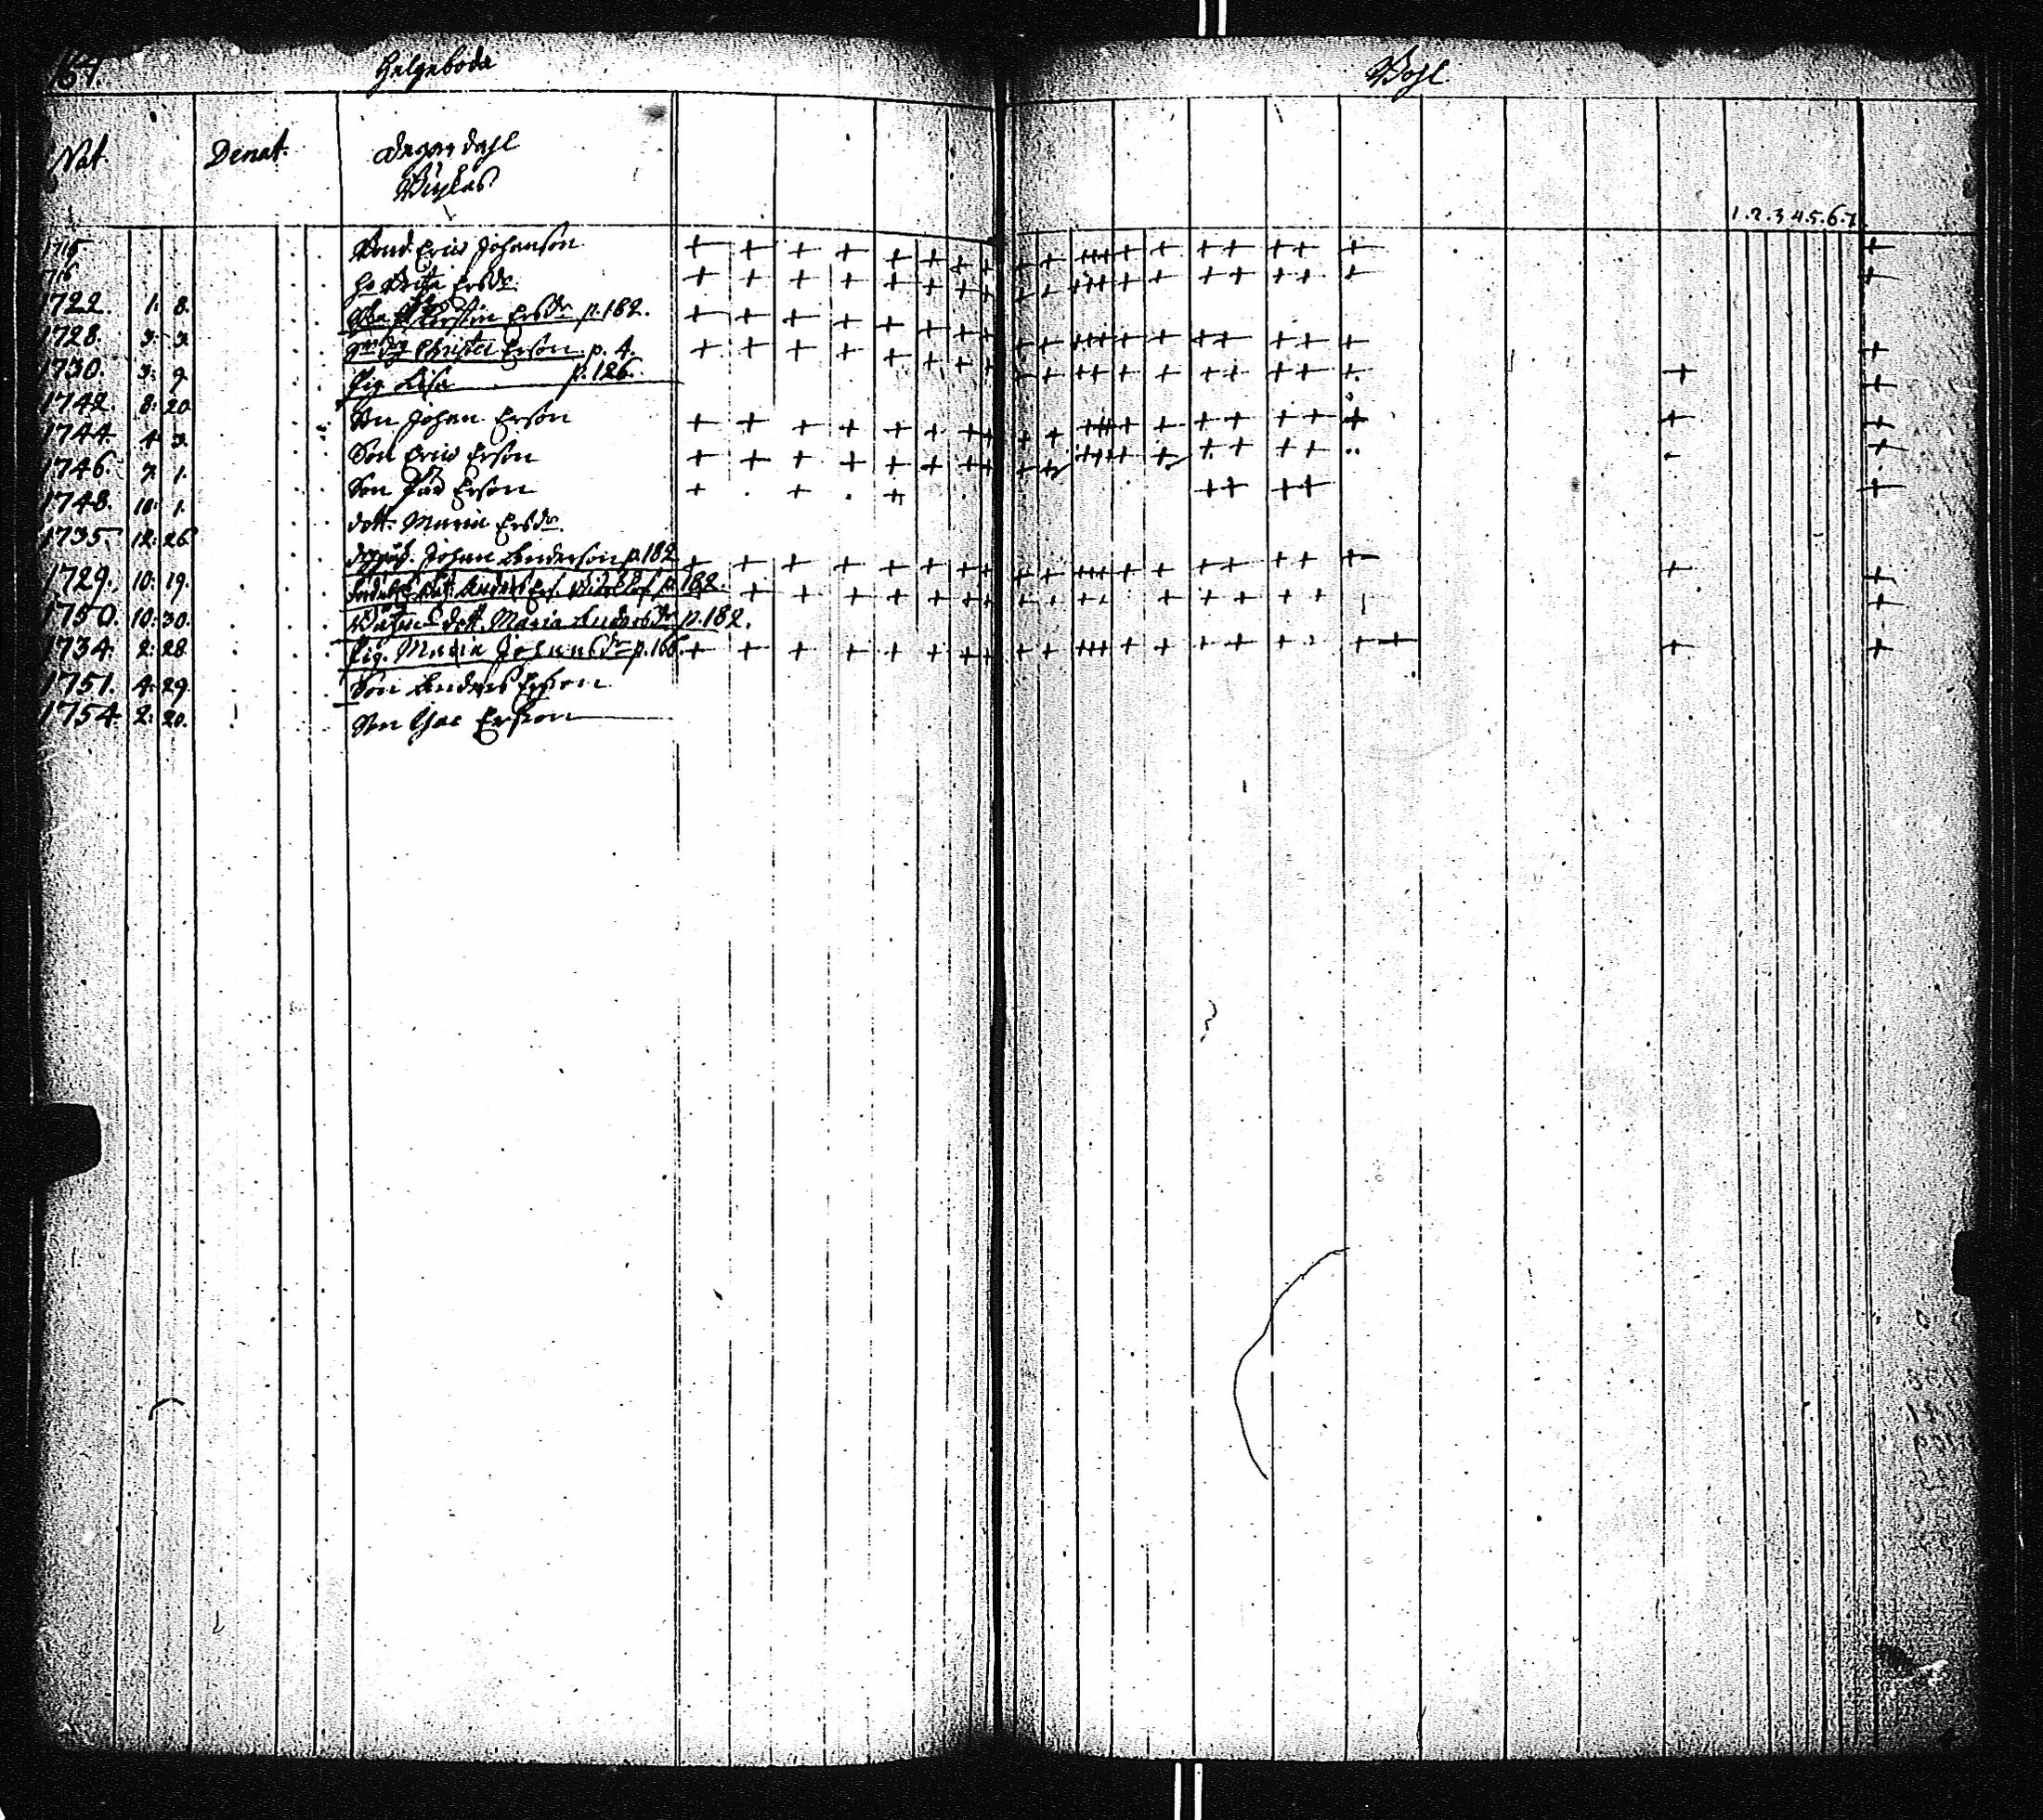 167. Helgeboda Bohl
Nat. Denat.
1.2.3.4.5.6.7.
1715. Bond. Eric Johanson
1716. Hu Brita Ersdr.
1722. 1: 8. Kerstin Ersdr p. 182.
1728. 3: 3. Christer Erson p. 4.
1730. 3: 9. Pig. Lisa p. 126.
1742. 8: 20. Son Johan Erson
1744. 4: 3. Son Eric Erson
1746. 7: 1. Son Pär Erson
1748. 10: 1. dott. Maria Ersdr.
1735. 12: 26. Johan Anderson p. 182
1729. 10: 19. Anders p. 182.
1750. 10: 30. dott. Maria Andersdr p. 182.
1734. 2: 28. Pig. Maria Johansdr p. 166.
1751. 4: 29. Son Anders Ersson
1754. 2: 20. Son Isac Ersson